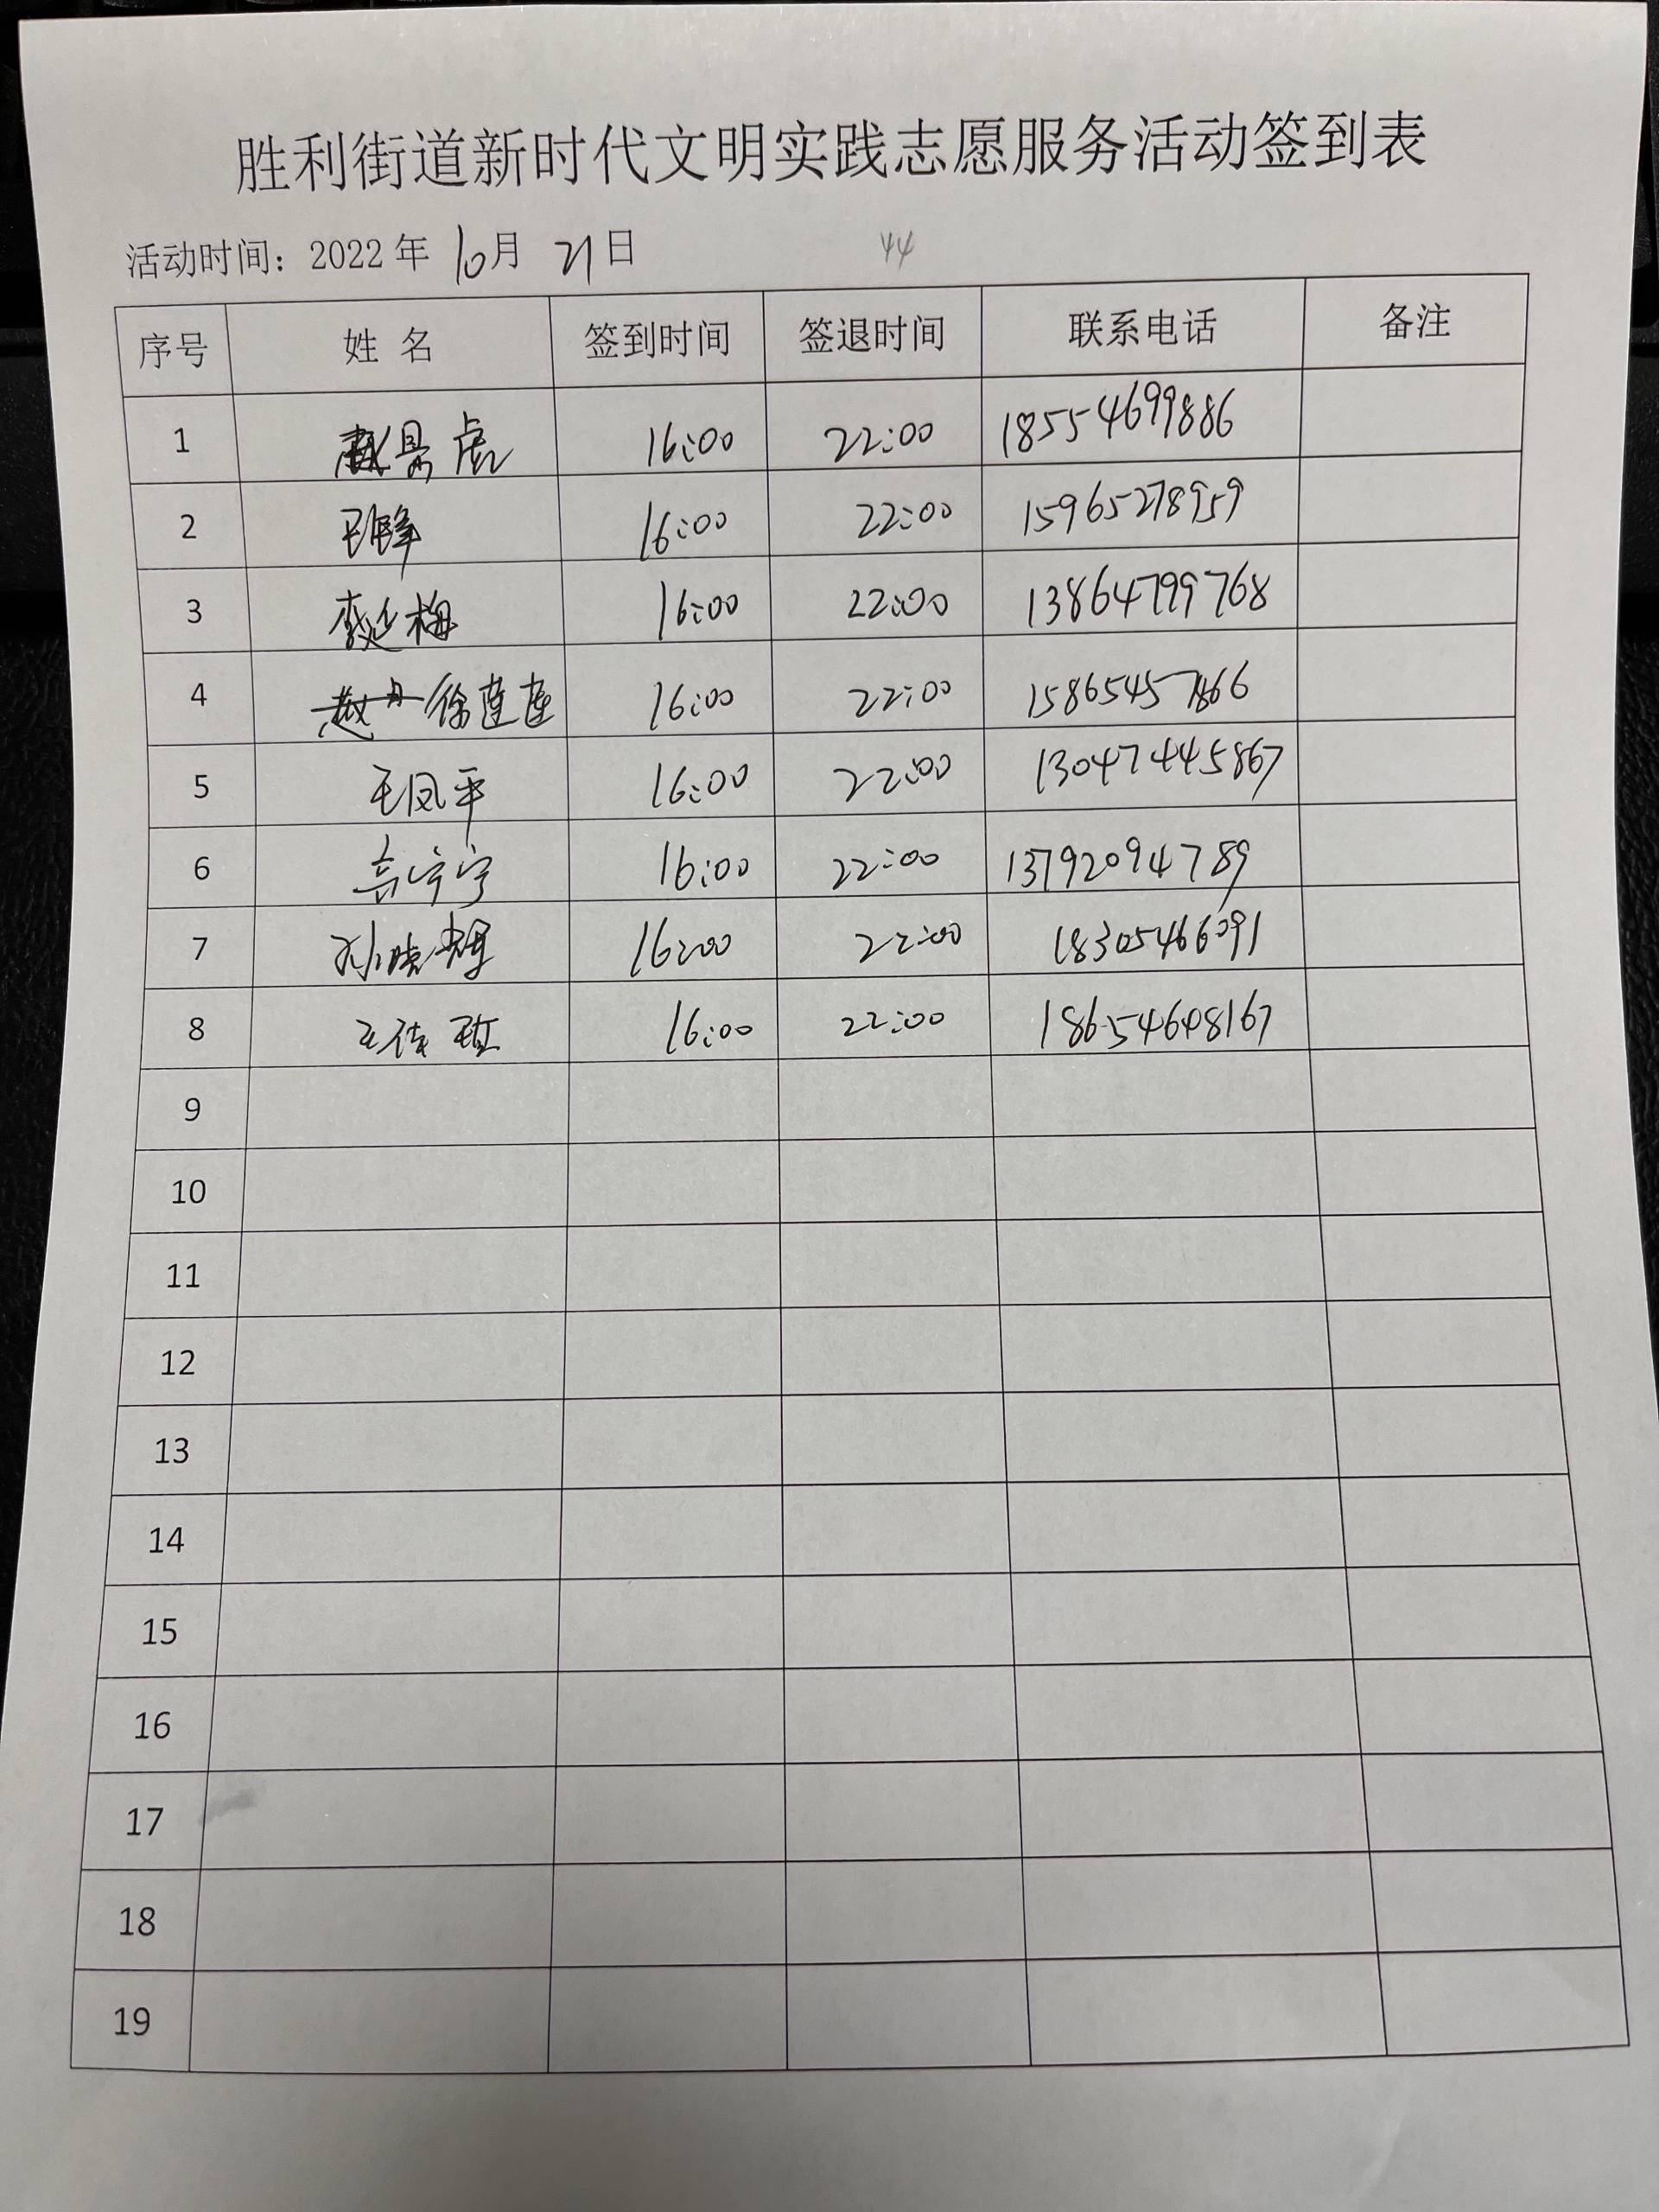 胜利街道新时代文明实践志愿服务活动签到表
活动时间：2022 年 10月 21日 44
序号 姓 名 签到时间 签退时间 联系电话 备注
1 赵景虎 16:00 22:00 18554699886
2 16:00 22:00 15965278959
3 李延梅 16:00 22:00 13864799768
4 徐莲莲 16:00 22:00
5 王凤平 16:00 22:00 13047445867
6 高宁宁 16:00 22:00 13792094789
7 孙晓辉 16:00 22:00 18305466091
8 16:00 22:00 18654648167
9
10
11
12
13
14
15
16
17
18
19